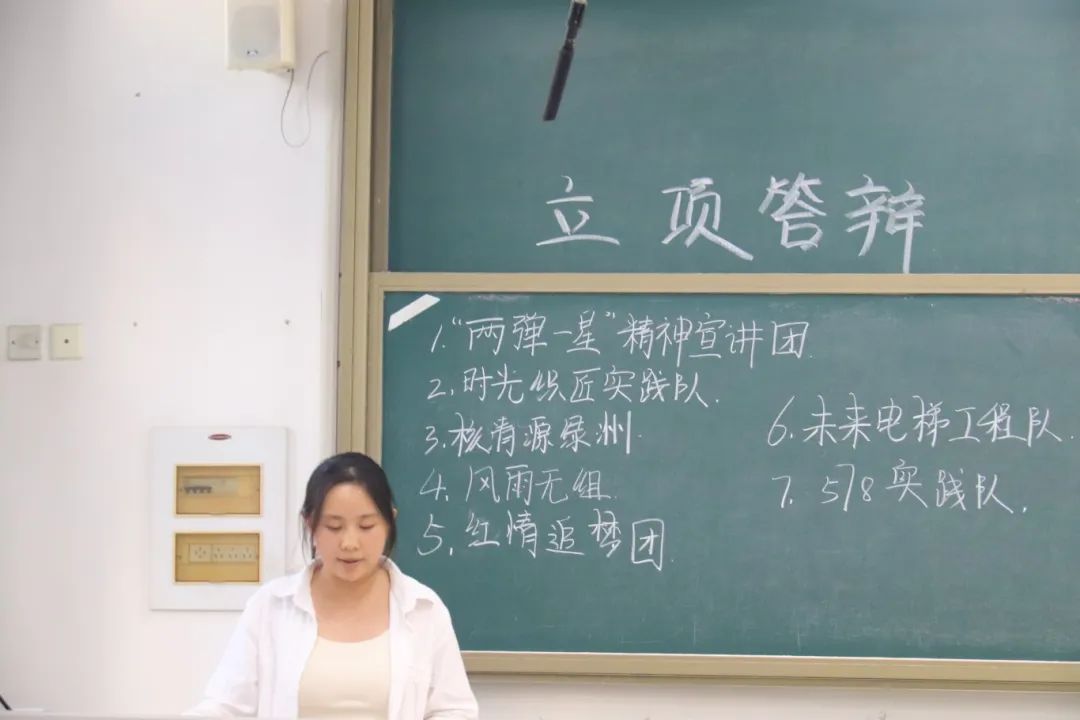 立项答辩
1."两弹一星"精神宣讲团.
2.时光织匠实践队.
3.核青源绿洲.
4.风雨无组.
5.红情追梦团
6.未来电梯工程队.
7.578实践队.